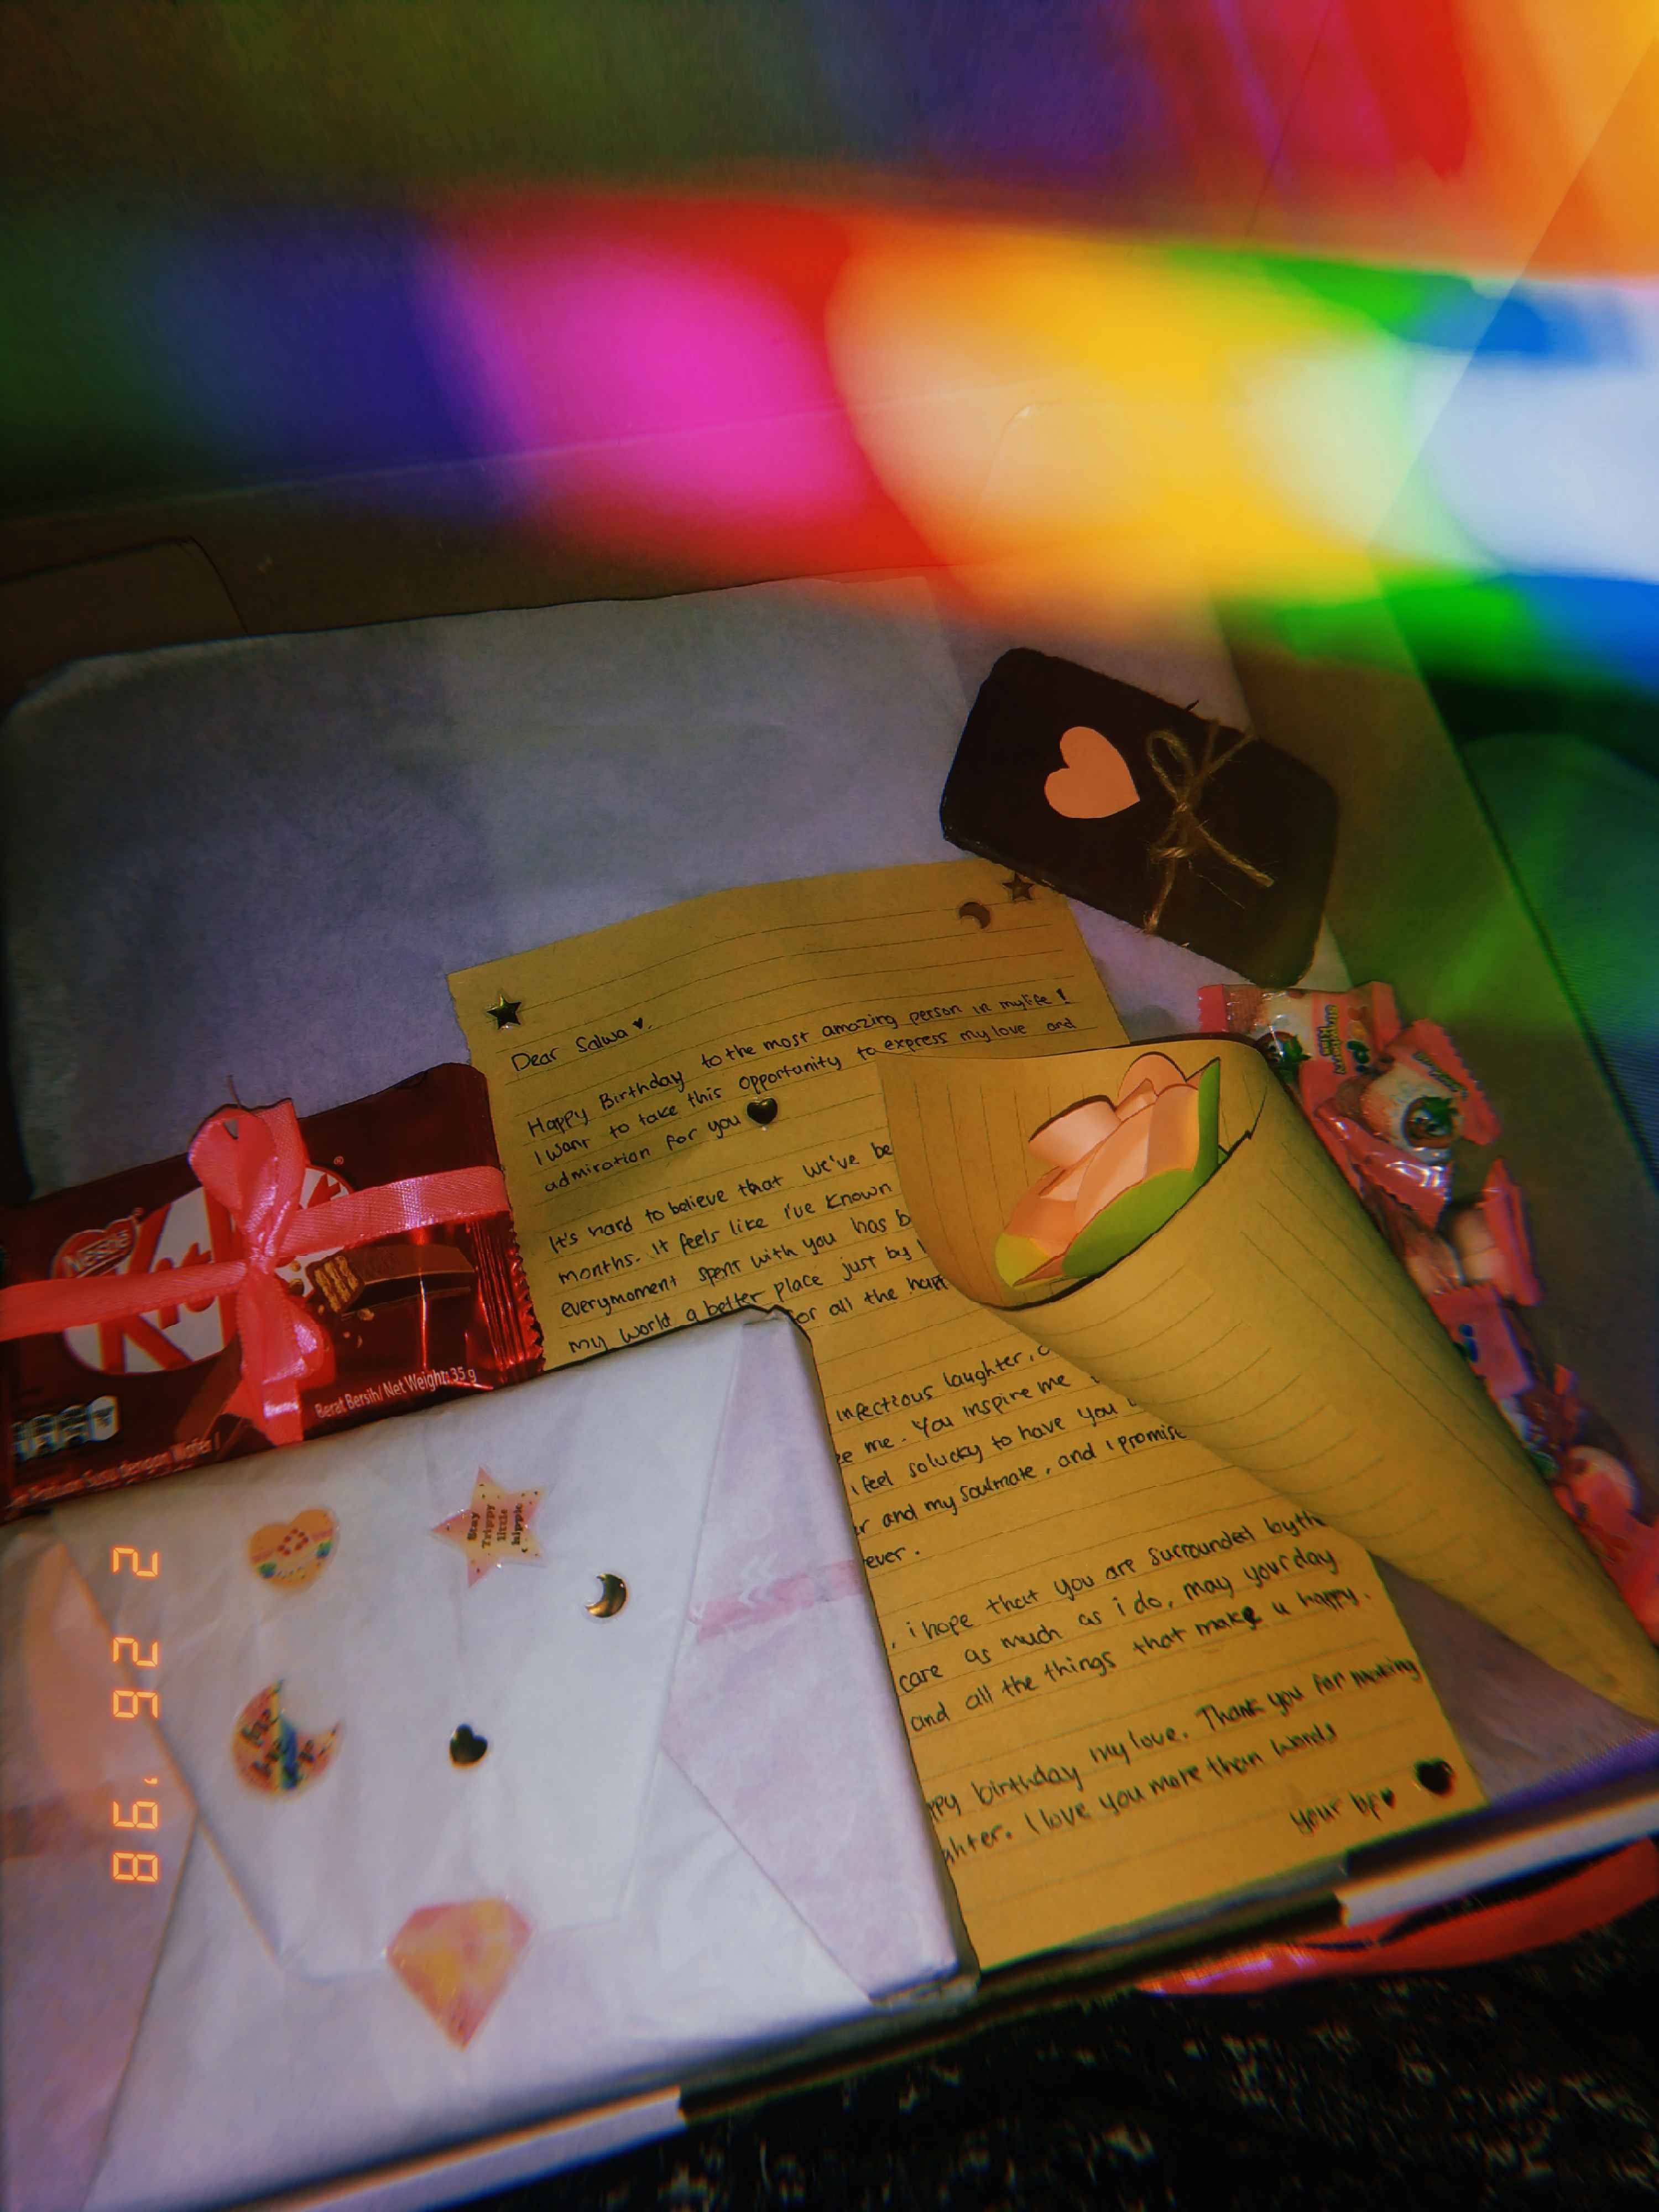 Dear Salwa ♥.
Happy Birthday to the most amazing person in mylife !
I want to take this opportunity to express my love and
admiration for you
It's hard to believe that we've be
months. It feels like i've known
everymoment spent with you has b
my world a better place just by
for all the happ
infectious laughter,
me. You inspire me
i feel solucky to have you
and my soulmate, and i promise
ever.
, i hope that you are surrounded by th
care as much as i do, may your day
and all the things that make u happy.
ppy birthday my love. Thank you for making
ghter. I love you more than words
your bf♥
Nestlé
KitKat
Berat Bersih/ Net Weight: 35 g
Stay
Trippy
little
hippie
2 26 '98